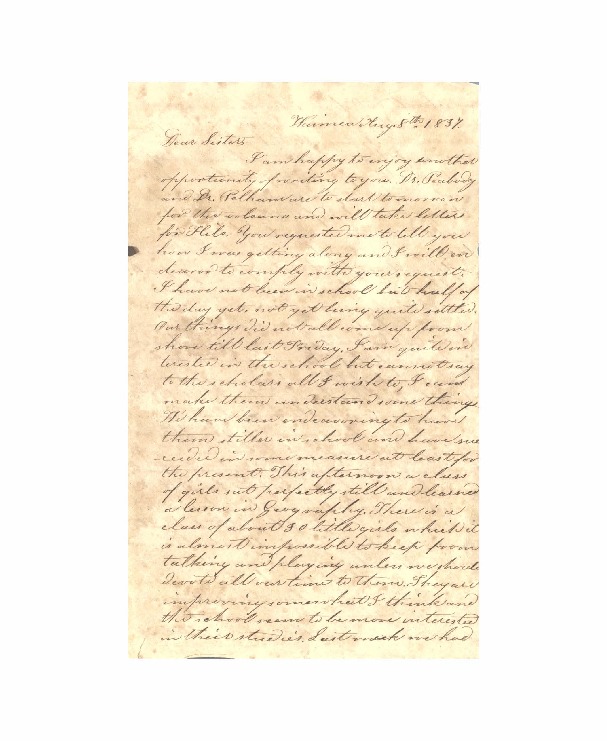 Waimea Aug 8th 1837.
Dear Sisters
I am happy to enjoy another
opportunity of writing to you. Dr. Peabody
and Dr. Pelham are to start tomorrow
for the volcano and will take letters
for Hilo. You requested me to tell you
how I was getting along and I will en
deavor to comply with your request.
I have not been in school but half of
the day yet, not yet being quite settled.
Our things did not all come up from
shore till last Friday. I am quite in
terested in the school but cannot say
to the scholars all I wish to, I can
make them understand some things
We have been endeavoring to have
them stiller in school and have suc
ceeded in some measure at least for
the present. This afternoon a class
of girls sat perfectly still and learned
a lesson in Geography. There is a
class of about 30 little girls which it
is almost impossible to keep from
talking and playing unless we should
devote all our time to them. They are
improving somewhat I think and
the school seem to be more interested
in their studies. Last week we had